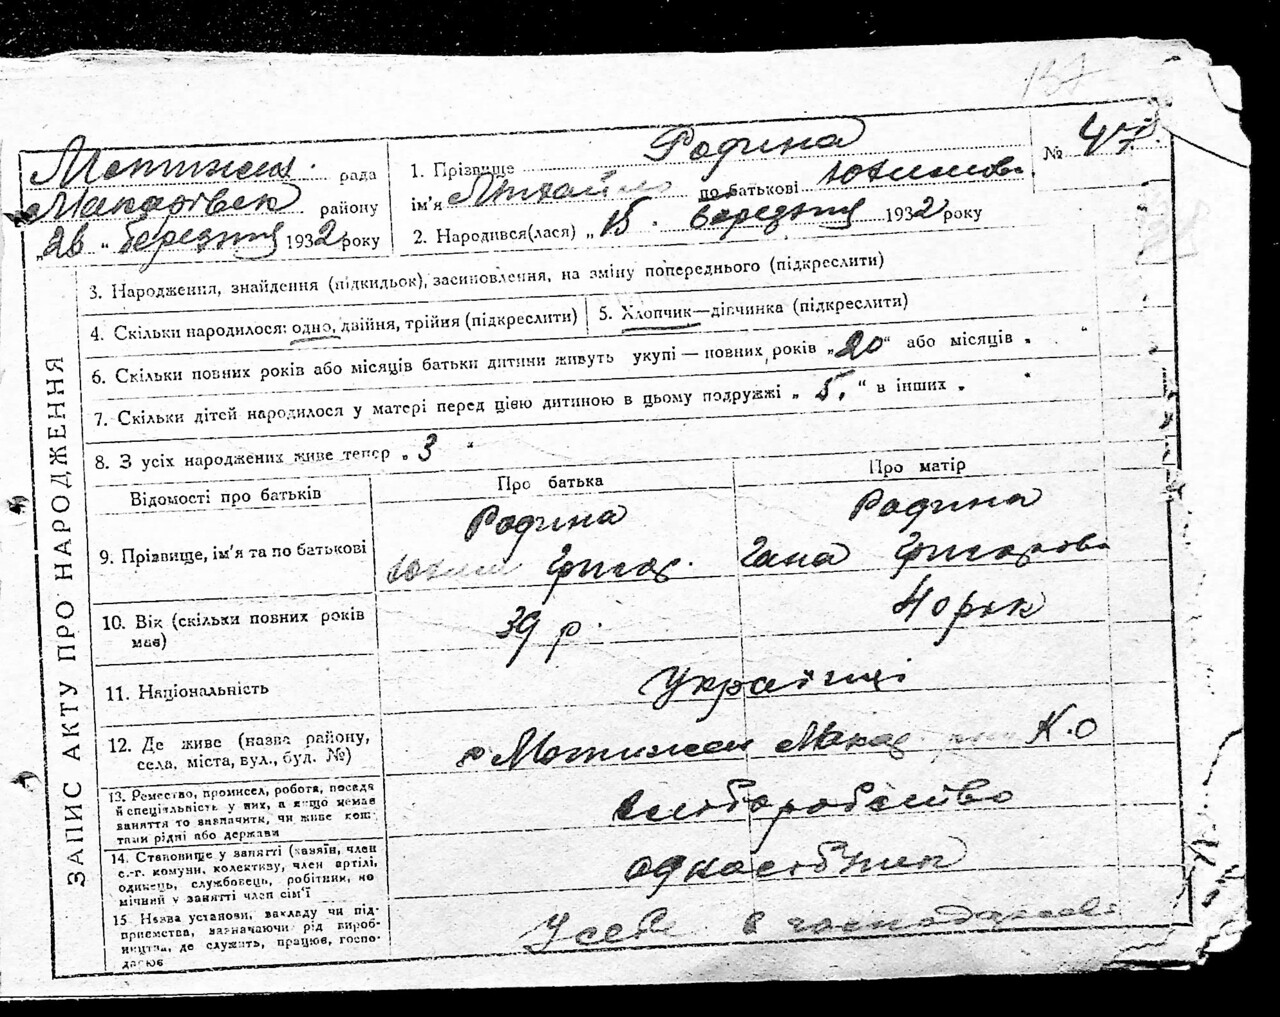 137
Мотижен. рада
Макарівськ району
„26 „ березня 1932 року
1. Прізвище Родина
ім'я Михайло по батькові Юхимова
2. Народився(лася) „ 15. березня 1932 року
№ 47
3. Народження, знайдення (підкидьок), засиновлення, на зміну попереднього (підкреслити)
4. Скільки народилося: одно, двійня, трійня (підкреслити)
5. Хлопчик—дівчинка (підкреслити)
6. Скільки повних років або місяців батьки дитини живуть укупі — повних років „20“ або місяців „ “
7. Скільки дітей народилося у матері перед цією дитиною в цьому подружжі „ 5. “ в інших „ “
8. З усіх народжених живе тепер „ 3 “
ЗАПИС АКТУ ПРО НАРОДЖЕННЯ
Відомості про батьків
Про батька
Про матір
9. Прізвище, ім'я та по батькові
Родина
Юхим Григор.
Родина
Гана Григорова
10. Вік (скільки повних років
має)
39 р.
40 рок
11. Національність
Українці
12. Де живе (назва району,
села, міста, вул., буд. №)
с Мотижен Макар К.О
13. Ремество, промисел, робота, посада
й спеціяльність у них, а якщо немає
заняття то визначити, чи живе кош-
тами рідні або держави
хліборобство
14. Становище у занятті (хазяїн, член
с.-г. комуни, колективу, член артілі,
одинець, службовець, робітник, по
мічний у занятті член сім'ї
одноосібник
15 Назва установи, закладу чи під-
приємства, зазначаючи рід вироб-
ництва, де служить, працює, госпо-
дарює
У себе в господарстві